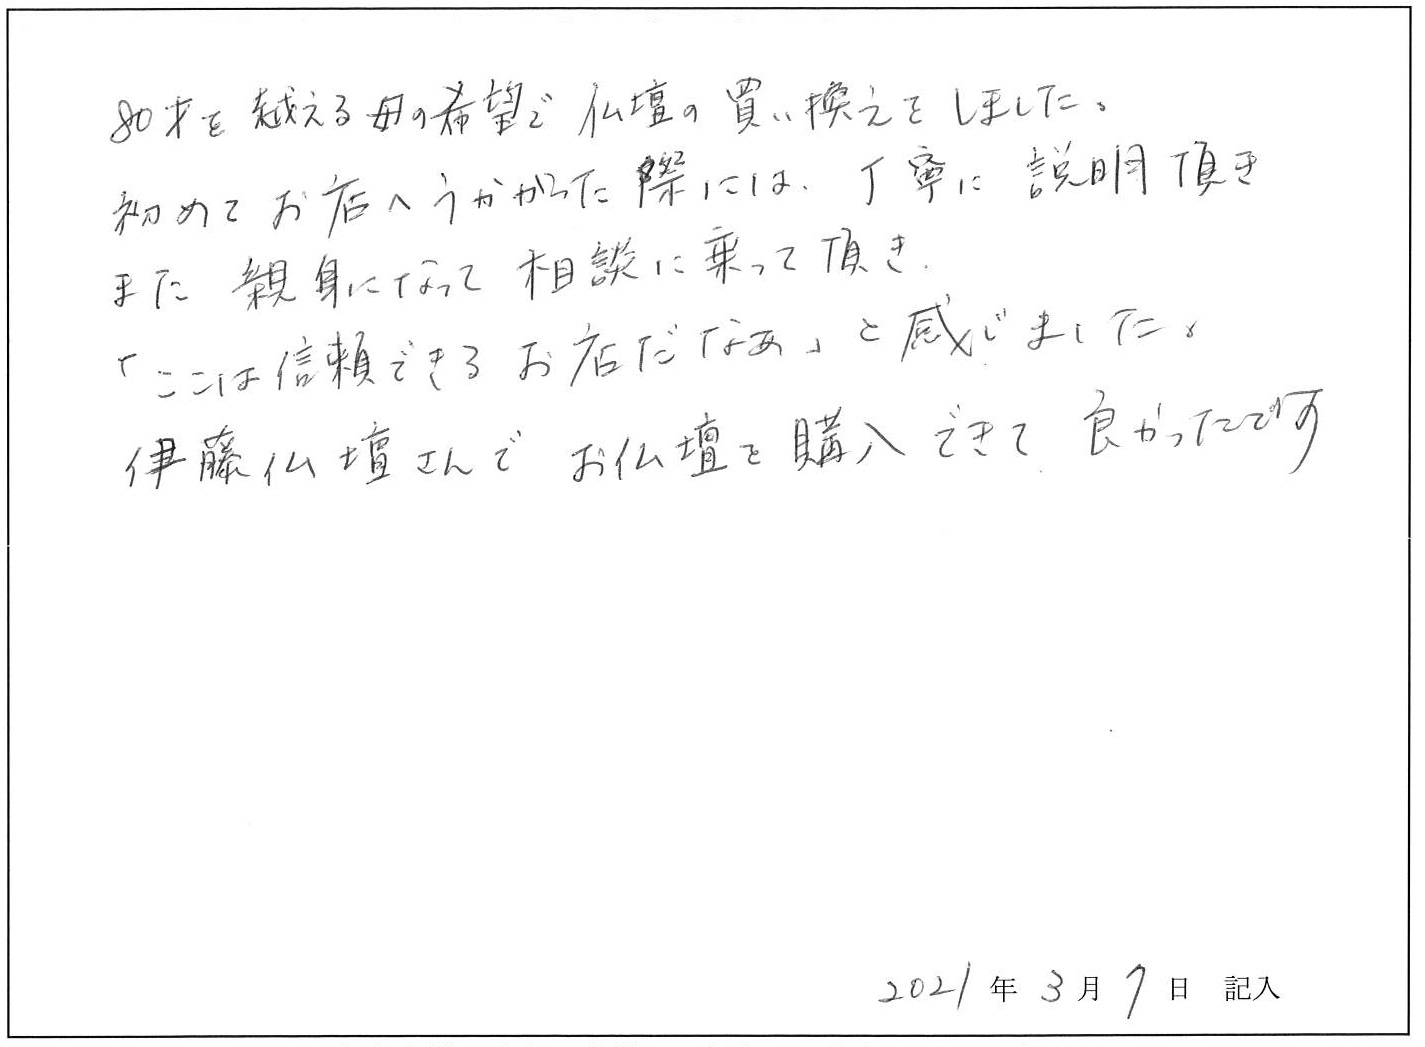 80才を越える母の希望で仏壇の買い換えをしました。
初めてお店へうかがった際には、丁寧に説明頂き
また親身になって相談に乗って頂き、
「ここは信頼できるお店だなあ」と感じました。
伊藤仏壇さんでお仏壇を購入できて良かったです
2021年3月7日 記入